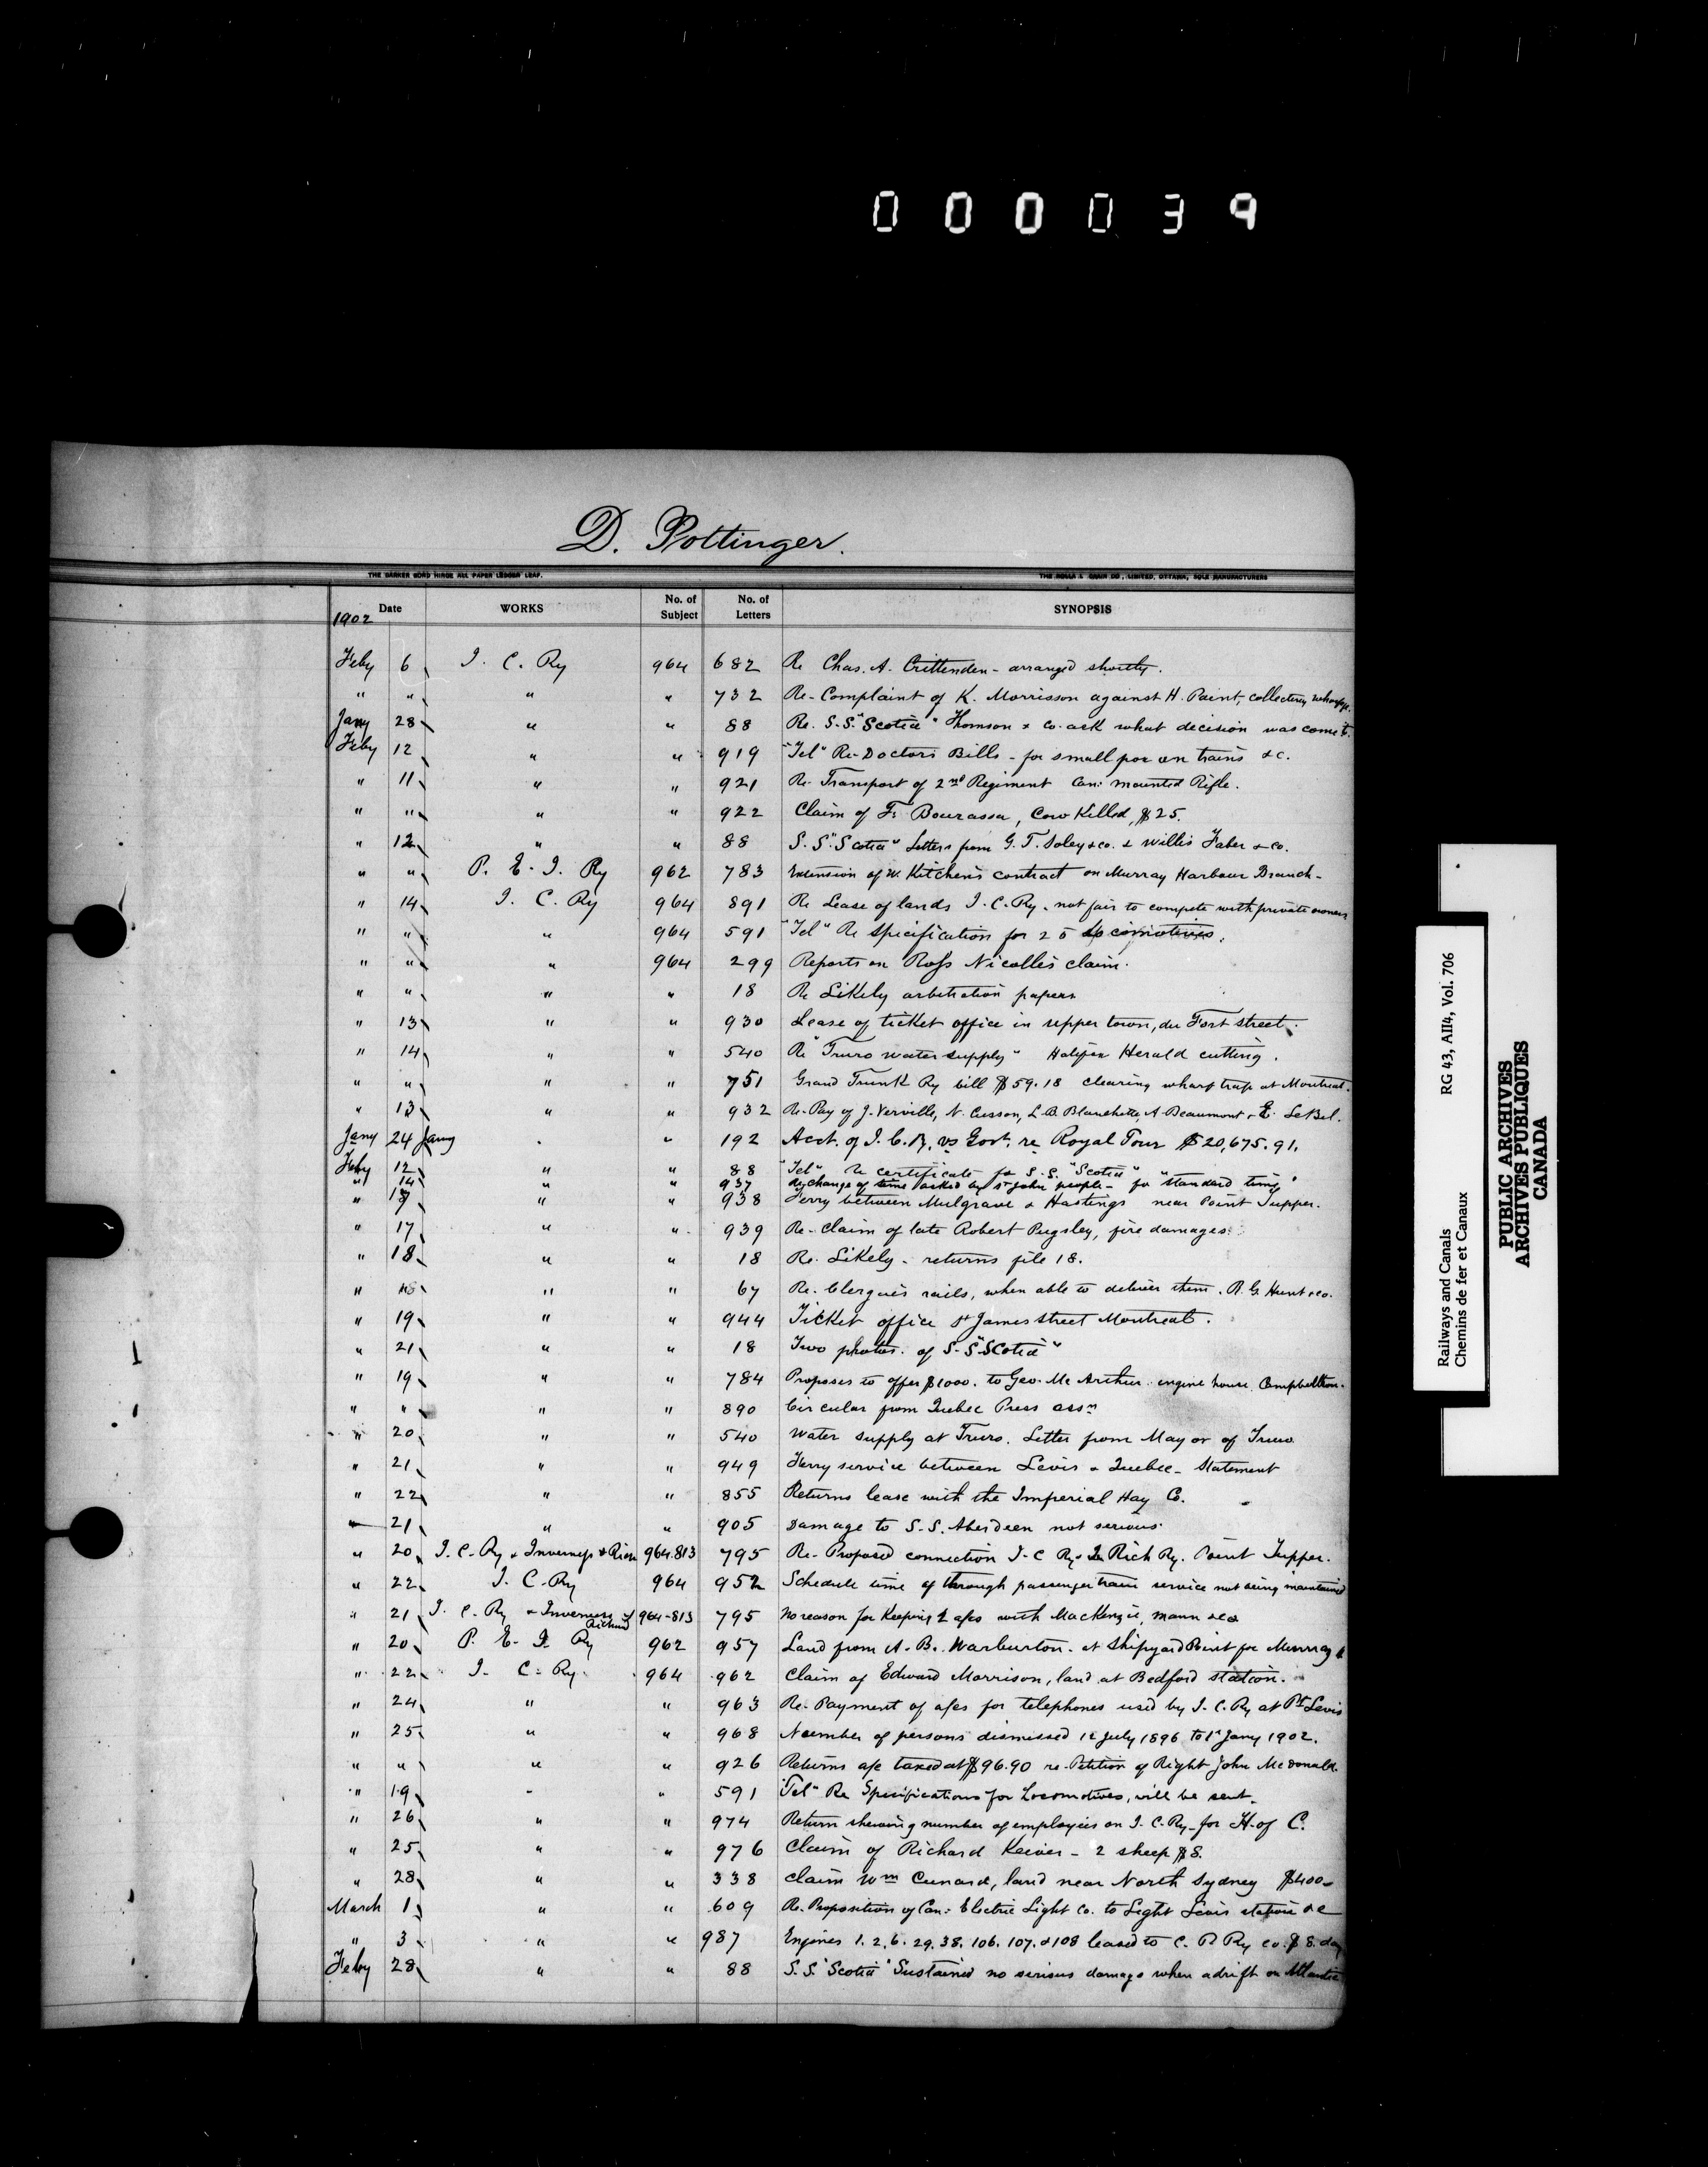 000039
D. Pottinger.
THE BARKER BOND HINGE ALL PAPER LEDGER LEAF.
THE ROLLA L. CRAIN CO., LIMITED, OTTAWA, SOLE MANUFACTURERS
1902 Date WORKS No. of Subject No. of Letters SYNOPSIS
Feby 6 I. C. Ry 964 682 Re Chas. A. Crittenden - arranged shortly.
" " " " 732 Re - Complaint of K. Morrisson against H. Paint, collecting wharfage.
Jany 28 " " 88 Re. S.S. "Scotia" Thomson & Co. ask what decision was come to.
Feby 12 " " 919 "Tel" Re - Doctors Bills - for small pox on trains &c.
" 11 " " 921 Re Transport of 2nd Regiment Can: Mounted Rifle.
" " " " 922 Claim of F: Bourassa, Cow Killed, $25.
" 12 " " 88 S.S. "Scotia" Letters from G. T. Soley & co. & Willis Faber & co.
" " P. E. I. Ry 962 783 Extension of W. Kitchen's contract on Murray Harbour Branch -
" 14 I. C. Ry 964 891 Re Lease of lands I. C. Ry. not fair to compete with private owners
" " " 964 591 "Tel" Re Specification for 25 Locomotives.
" " " 964 299 Reports on Ross Nicolle's claim.
" " " " 18 Re Likely arbitration papers
" 13 " " 930 Lease of ticket office in upper town, du Fort street.
" 14 " " 540 Re "Truro water supply" Halifax Herald cutting.
" " " " 751 Grand Trunk Ry bill $59.18 clearing wharf trap at Montreal.
" 13 " " 932 Re - Pay of J. Verville, N. Cusson, L. B. Blanchette A. Beaumont & E. LeBel.
Jany 24 Jany " " 192 Acct. of I. C. R. vs Govt. re Royal Tour $20,675.91.
Feby 12 " " 88 "Tel" Re certificate for S.S. "Scotia"
" 14 " " 937 Re change of time asked by St John people - for "standard time"
" 17 " " 938 Ferry between Mulgrave & Hastings near Point Tupper.
" 17 " " 939 Re - claim of late Robert Pugsley, fire damages.
" 18 " " 18 Re. Likely - returns file 18.
" 18 " " 67 Re. Clergue's rails, when able to deliver them. R. G. Hunt & co.
" 19 " " 944 Ticket office St James street Montreal.
" 21 " " 18 Two photos. of S.S. "Scotia"
" 19 " " 784 Proposes to offer $1000. to Geo. McArthur engine house Campbellton.
" " " " 890 Circular from Quebec Press assn
" 20 " " 540 Water supply at Truro. Letter from Mayor of Truro
" 21 " " 949 Ferry service between Levis & Quebec - Statement
" 22 " " 855 Returns lease with the Imperial Hay Co.
" 21 " " 905 Damage to S.S. Aberdeen not serious.
" 20 I. C. Ry & Inverness & Rich 964.813 795 Re - Proposed connection I. C Ry & In Rich Ry. Point Tupper.
" 22 I. C. Ry 964 952 Schedule time of through passenger train service not being maintained
" 21 I. C. Ry & Inverness & Richmd 964-813 795 No reason for Keeping 2 a/cs with MacKenzie, Mann & Co
" 20 P. E. I. Ry 962 957 Land from A. B. Warburton. at Shipyard Point for Murray H
" 22 I. C. Ry. 964 962 Claim of Edward Morrison, land at Bedford station.
" 24 " " 963 Re - Payment of a/cs for telephones used by I. C. Ry at Pt Levis
" 25 " " 968 Number of persons dismissed 12 July 1896 to 1st Jany 1902.
" " " " 926 Returns a/c taxed at $96.90 re - Petition of Right John McDonald.
" 19 " " 591 "Tel" Re Specifications for Locomotives, will be sent.
" 26 " " 974 Return shewing number of employees on I. C. Ry - for H. of C.
" 25 " " 976 Claim of Richard Keiver - 2 sheep $8.
" 28 " " 338 Claim Wm Cunard, land near North Sydney $400
March 1 " " 609 Re. Proposition of Can: Electric Light Co. to Light Levis station &c
" 3 " " 987 Engines 1. 2. 6. 29. 38. 106. 107. & 108 leased to C. P. Ry co. $8. day
Feby 28 " " 88 S.S. "Scotia" Sustained no serious damage when adrift on Atlantic
Railways and Canals RG 43, AII4, Vol. 706
Chemins de fer et Canaux
PUBLIC ARCHIVES
ARCHIVES PUBLIQUES
CANADA